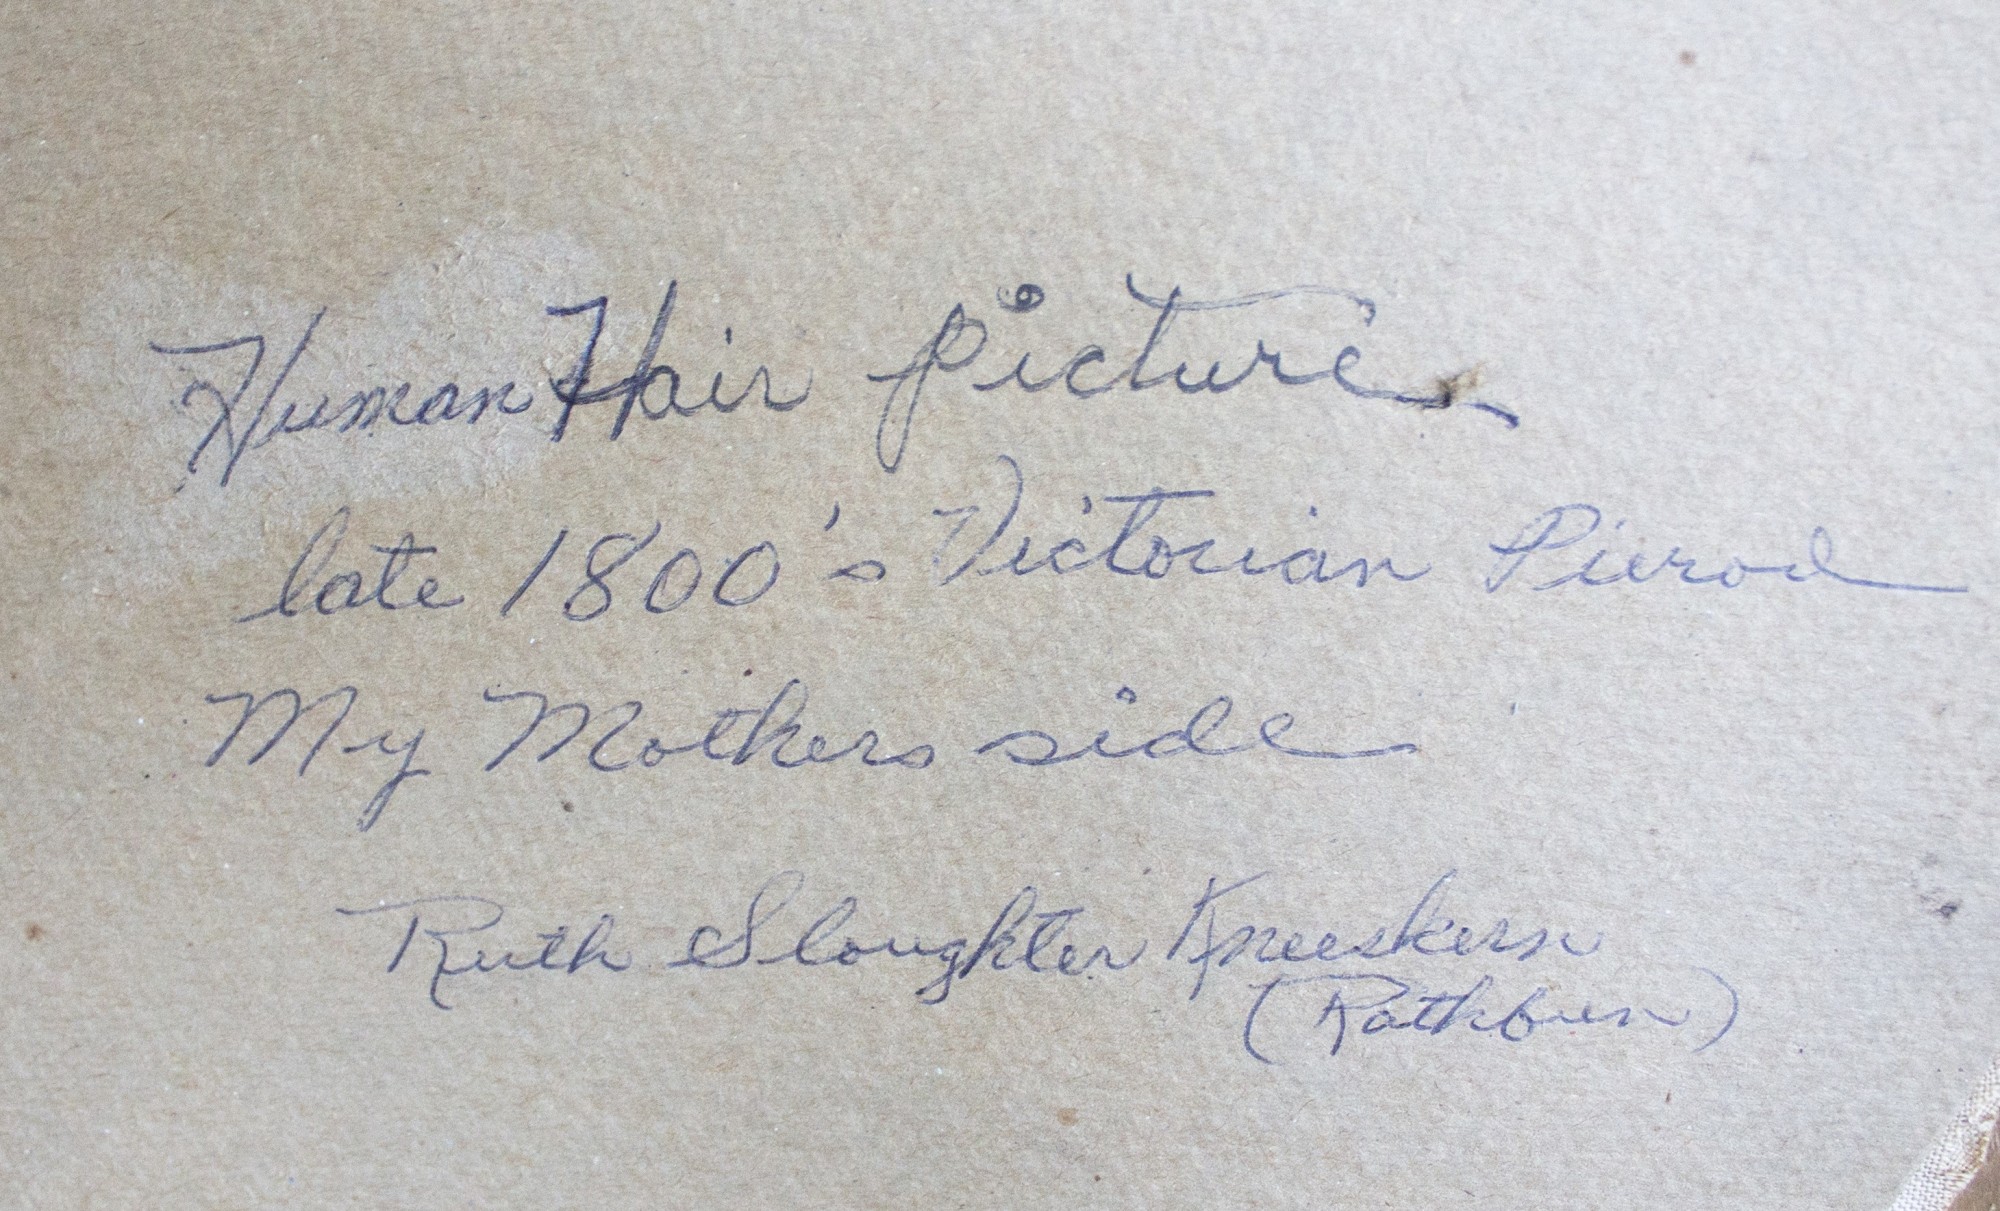 Human Hair Picture
late 1800's Victorian Pierod
My Mothers side
Ruth Sloughter Kneeskern
(Rathbun)